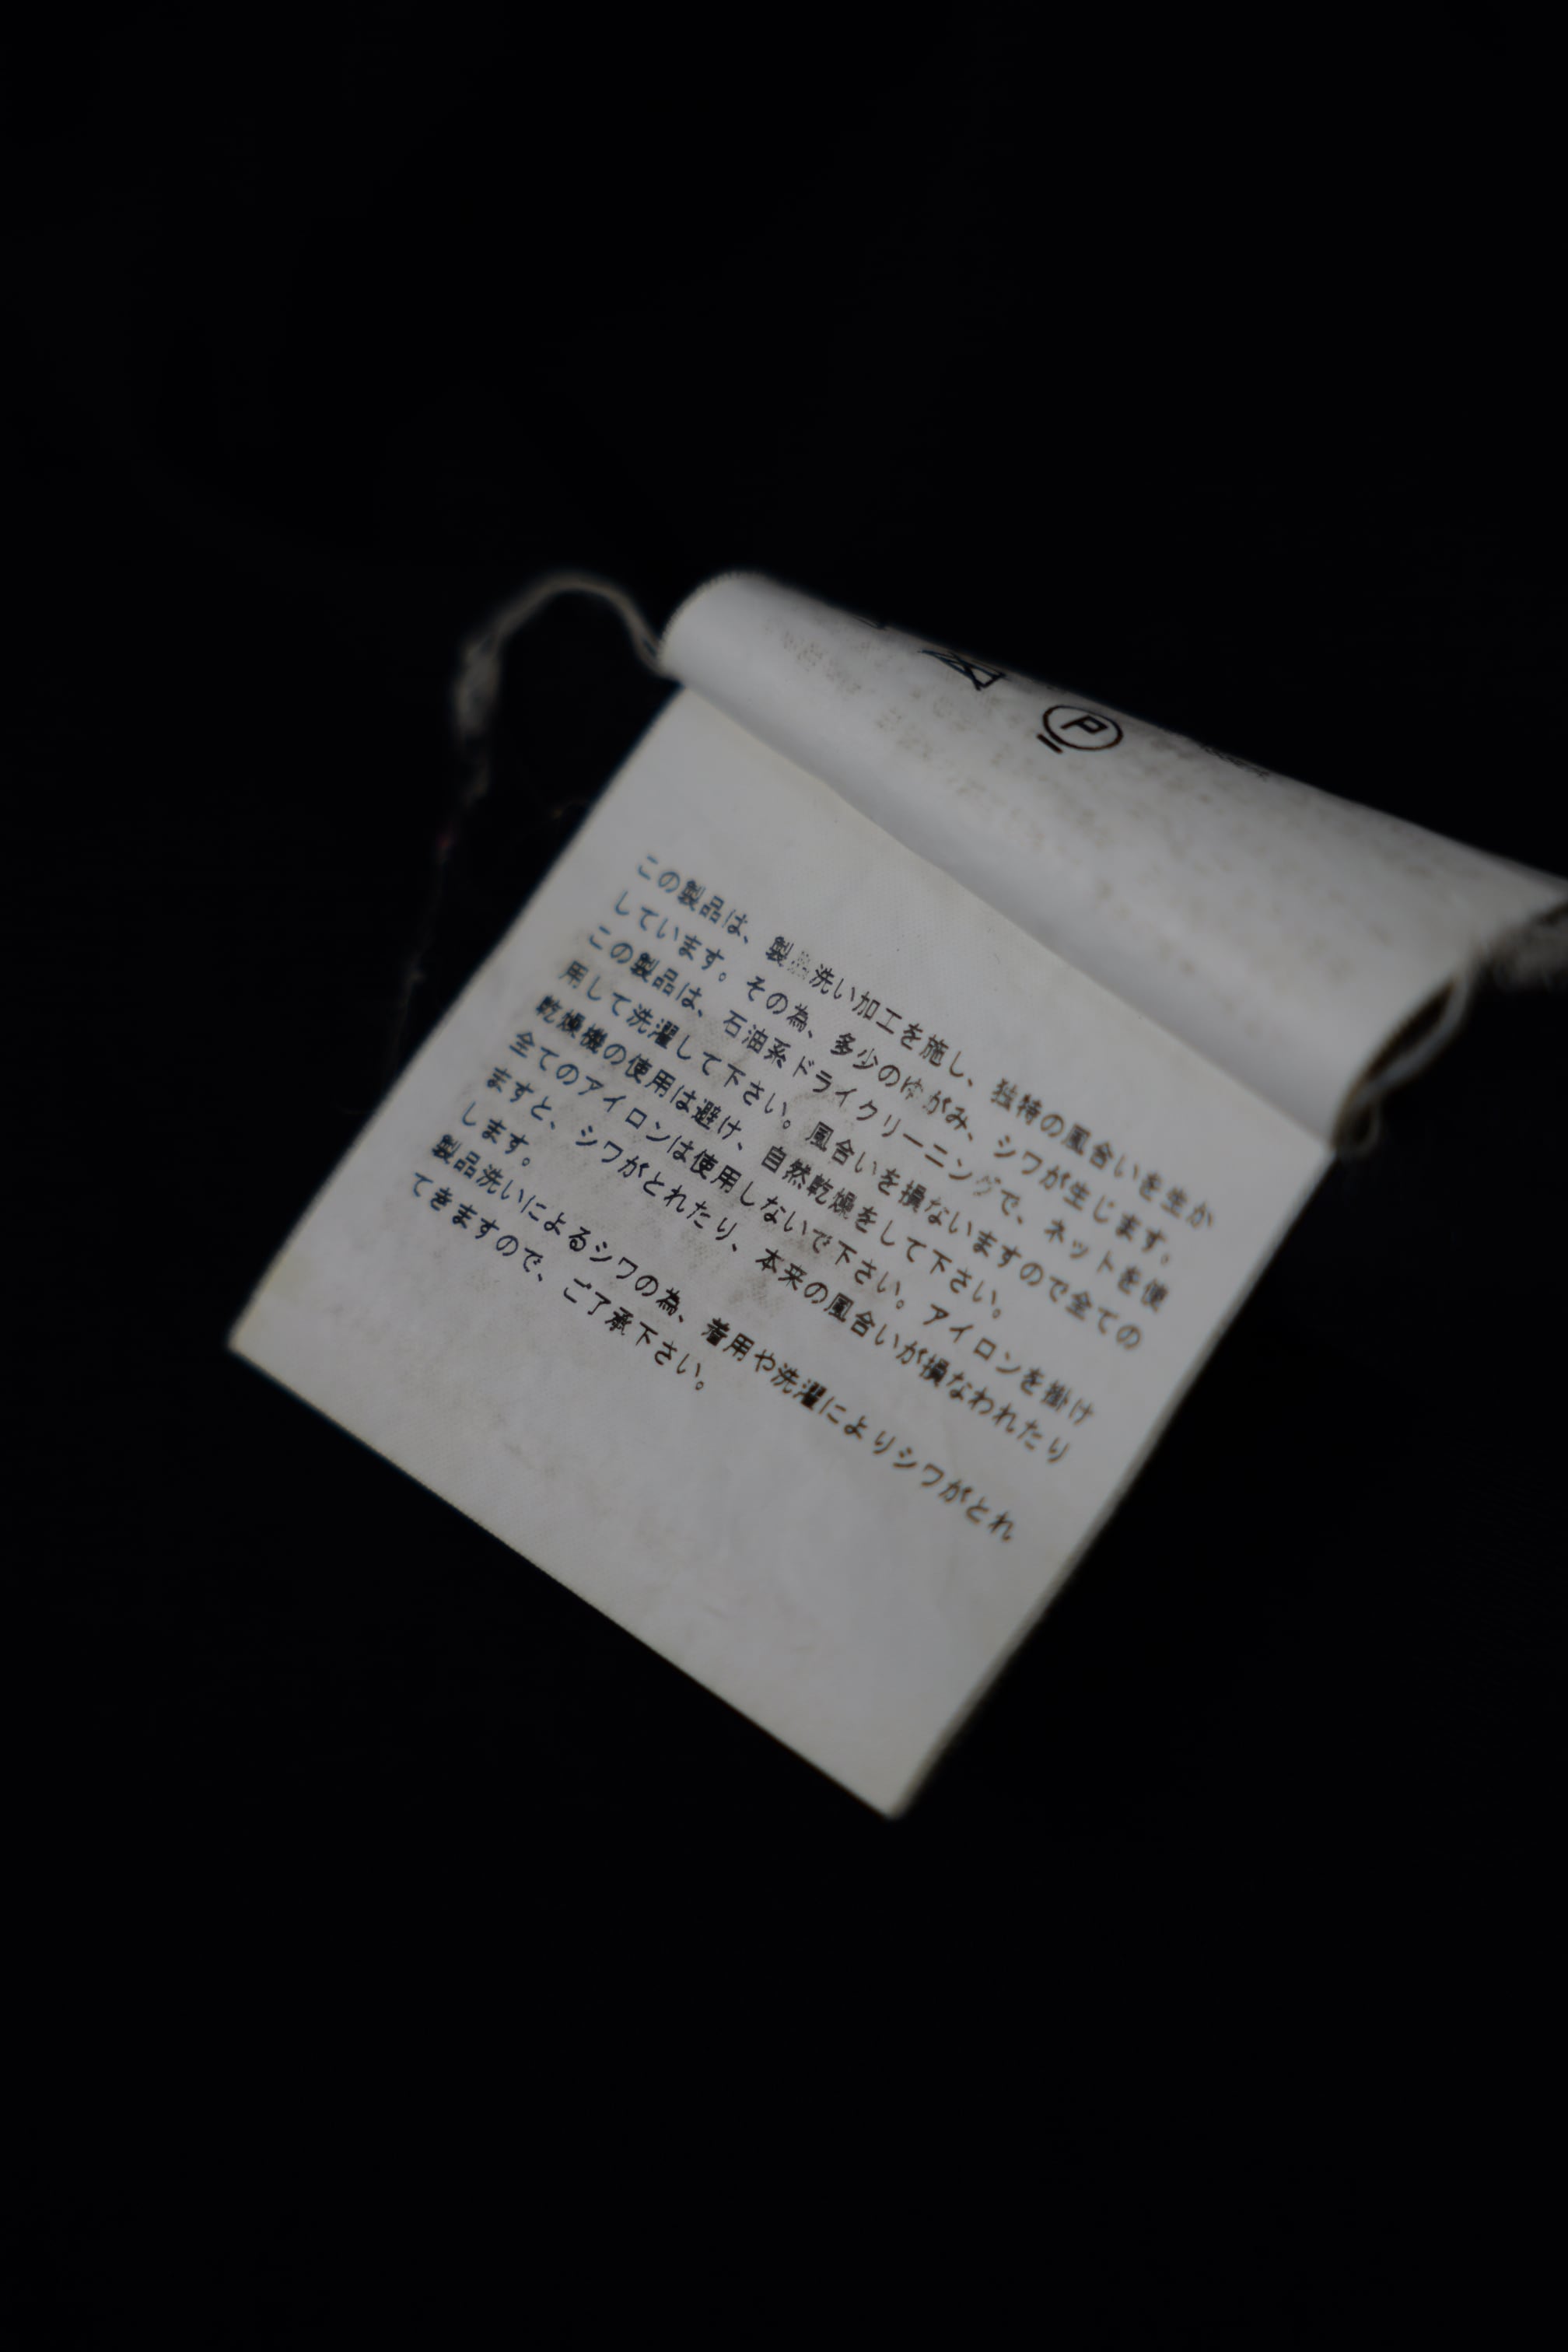 P
この製品は、製品洗い加工を施し、独特の風合いを生か
しています。その為、多少のゆがみ、シワが生じます。
この製品は、石油系ドライクリーニングで、ネットを使
用して洗濯して下さい。風合いを損ないますので全ての
乾燥機の使用は避け、自然乾燥をして下さい。
全てのアイロンは使用しないで下さい。アイロンを掛け
ますと、シワがとれたり、本来の風合いが損なわれたり
します。
製品洗いによるシワの為、着用や洗濯によりシワがとれ
てきますので、ご了承下さい。